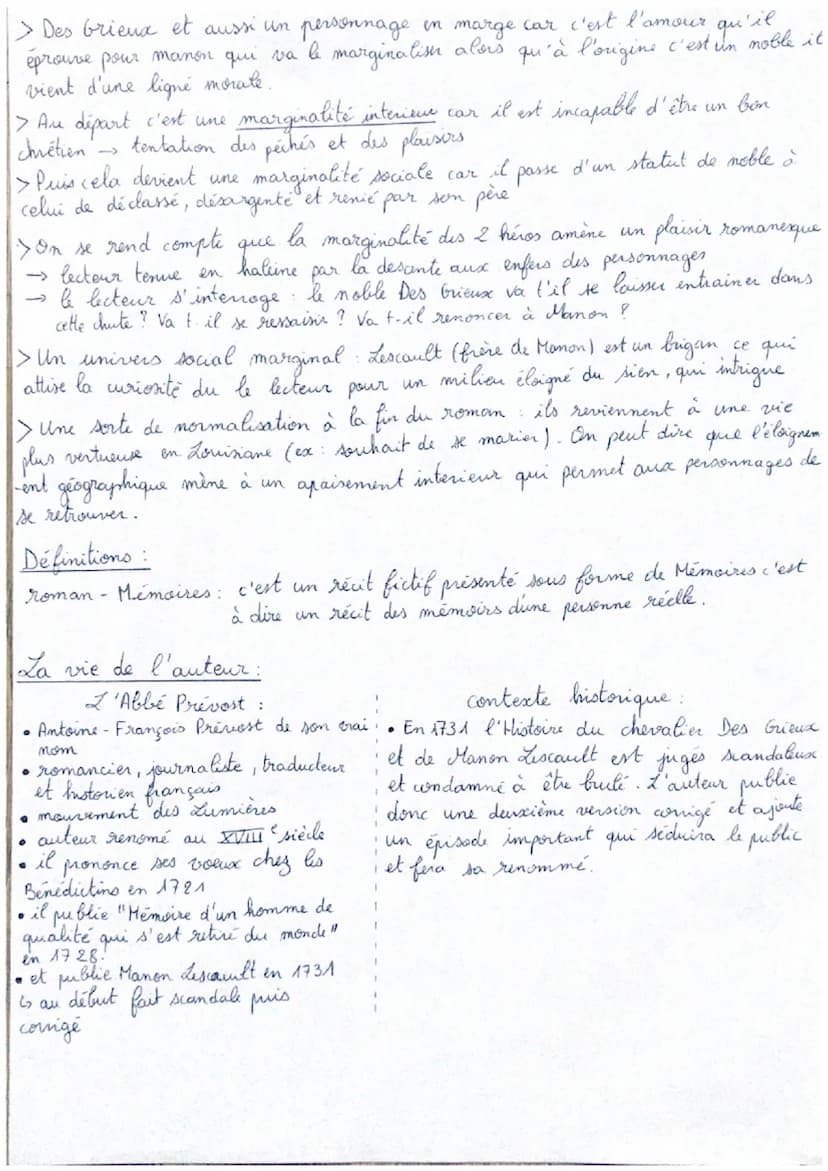 > Des Grieux et aussi un personnage en marge car c'est l'amour qu'il
éprouve pour manon qui va le marginaliser alors qu'à l'origine c'est un noble il
vient d'une ligné morale.
> Au départ c'est une marginalité interieur car il est incapable d'être un bon
chrétien → tentation des péchés et des plaisirs
> Puis cela devient une marginalité sociale car il passe d'un statut de noble à
celui de déclassé, désargenté et renié par son père
> On se rend compte que la marginalité des 2 héros amène un plaisir romanesque
→ lecteur tenue en haleine par la descante aux enfers des personnages
→ le lecteur s'interroge : le noble Des Grieux va t'il se laisser entrainer dans
cette chute ? Va t-il se ressaisir ? Va t-il renoncer à Manon ?
> Un univers social marginal : Lescault (frère de Manon) est un brigan ce qui
attise la curiosité du le lecteur pour un milieu éloigné du sien, qui intrigue
> Une sorte de normalisation à la fin du roman : ils reviennent à une vie
plus vertueuse en Louisiane (ex : souhait de se marier). On peut dire que l'éloignem
-ent géographique mène à un apaisement interieur qui permet aux personnages de
se retrouver.
Définitions :
roman - Mémoires : c'est un récit fictif présenté sous forme de Mémoires c'est
à dire un récit des mémoirs d'une personne réelle.
La vie de l'auteur :
L'Abbé Prévost :
• Antoine-François Prévost de son vrai
nom
• romancier, journaliste, traducteur
et historien français
• mouvement des Lumières
• auteur renomé au XVIIIe siècle
• il prononce ses voeux chez les
Bénédictins en 1721
• il publie "Mémoire d'un homme de
qualité qui s'est retiré du monde"
en 1728.
• et publie Manon Lescault en 1731
↳ au début fait scandale puis
corrigé
contexte historique :
• En 1731 l'Histoire du chevalier Des Grieux
et de Manon Lescault est jugés scandaleux
et condamné à être brulé. L'auteur publie
donc une deuxième version corrigé et ajoute
un épisode important qui séduira le public
et fera sa renommé.